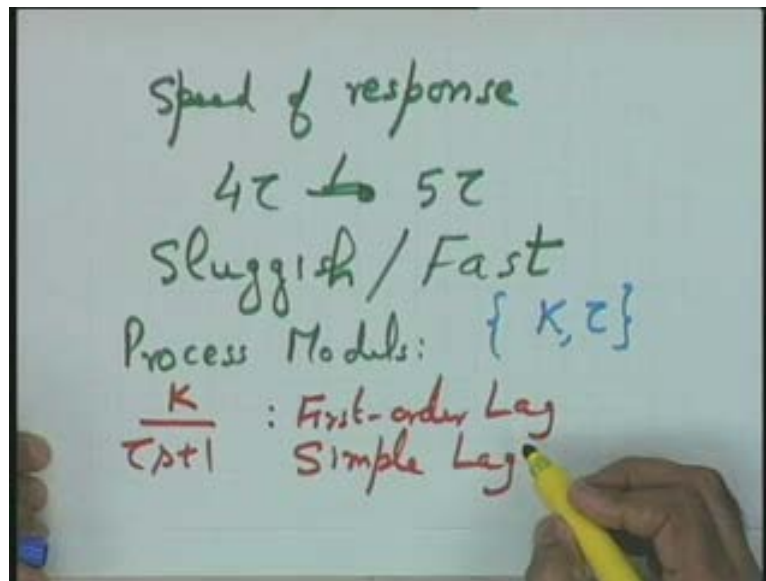 Speed of response
4τ to 5τ
Sluggish / Fast
Process Models: { K, τ }
K/(τs+1) : First-order Lag
Simple Lag